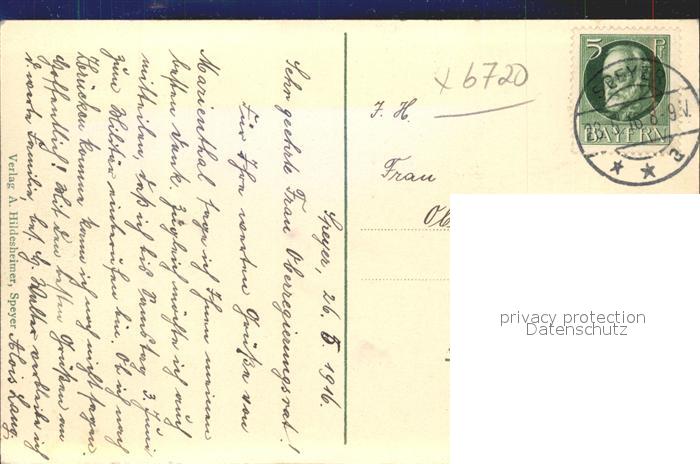 Speyer, 26. 5. 1916.
Sehr geehrte Frau Oberregierungsrat!
Für Ihre werten Grüße von
Marienthal sage ich Ihnen meinen
besten Dank. Zugleich möchte ich auch
mitteilen, daß ich bis Samstag 3. Juni
zum Militär einberufen bin. Ob ich nach
kommen kann ich noch nicht sagen.
Hoffentlich! Mit den besten Grüßen an
werte Familie, bes. Walter verbleibe ich
Alois Lang
Verlag A. Hildesheimer, Speyer
x 6720
I. H.
Frau
Ob
5 Pf
BAYERN
SPEYER
privacy protection
Datenschutz